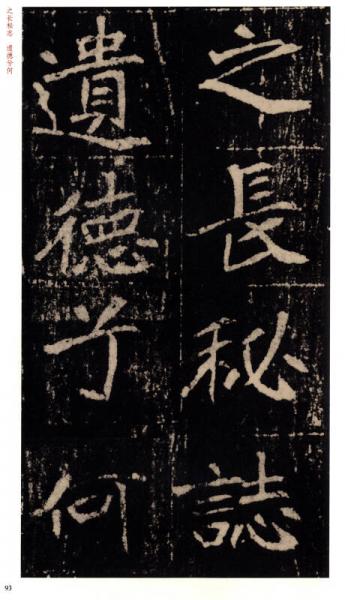 之长秘志 遗德兮何
之長秘誌
遺德兮何
93